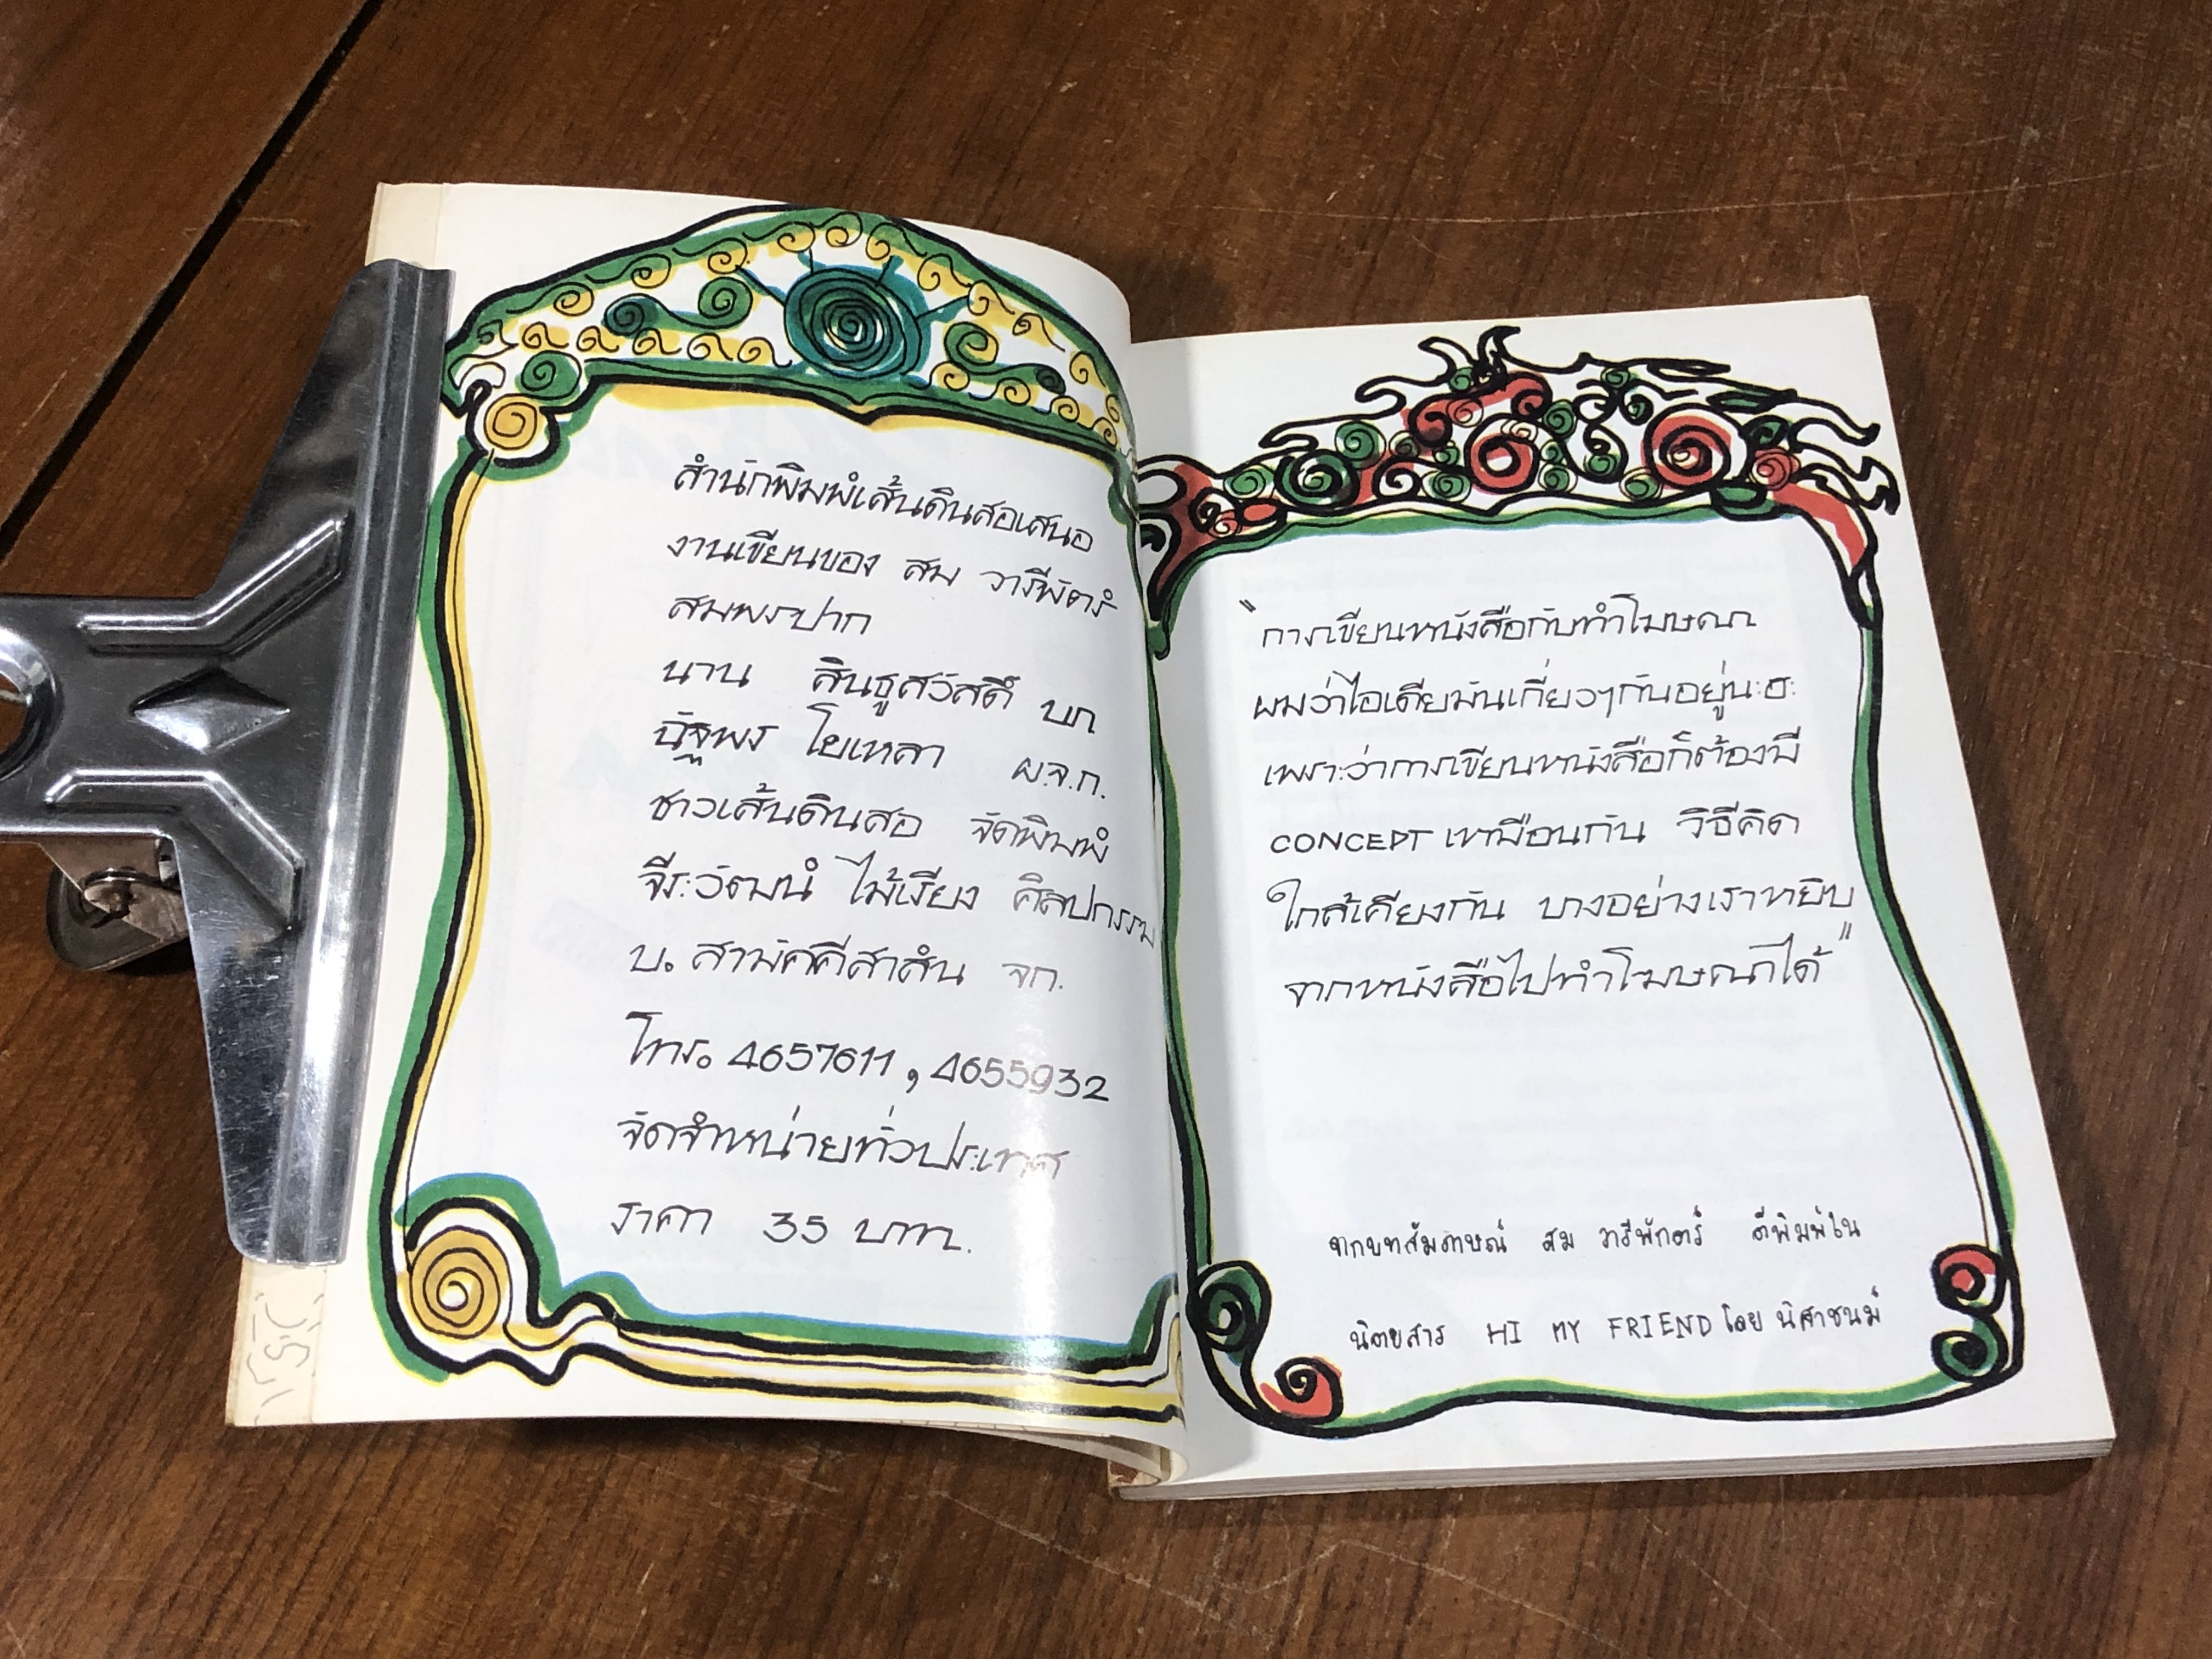 สำนักพิมพ์เส้นดินสอเสนอ
งานเขียนของ สม วารีพัตร์
สมพรปาก
นาน สินธูสวัสดิ์ บก
ณัฐพร โยเหลา ผ.จ.ก.
ชาวเส้นดินสอ จัดพิมพ์
จีระวัฒน์ ไม้เรียง ศิลปกรรม
บ. สามัคคีสาส์น จก.
โทร. 4657611, 4655932
จัดจำหน่ายทั่วประเทศ
ราคา 35 บาท.
"การเขียนหนังสือกับทำโฆษณา
ผมว่าไอเดียมันเกี่ยวๆกันอยู่นะฮะ
เพราะว่าการเขียนหนังสือก็ต้องมี
CONCEPT เหมือนกัน วิธีคิด
ใกล้เคียงกัน บางอย่างเราหยิบ
จากหนังสือไปทำโฆษณาได้"
จากบทสัมภาษณ์ สม วารีพักตร์ ตีพิมพ์ใน
นิตยสาร HI MY FRIEND โดย นิศาชนม์